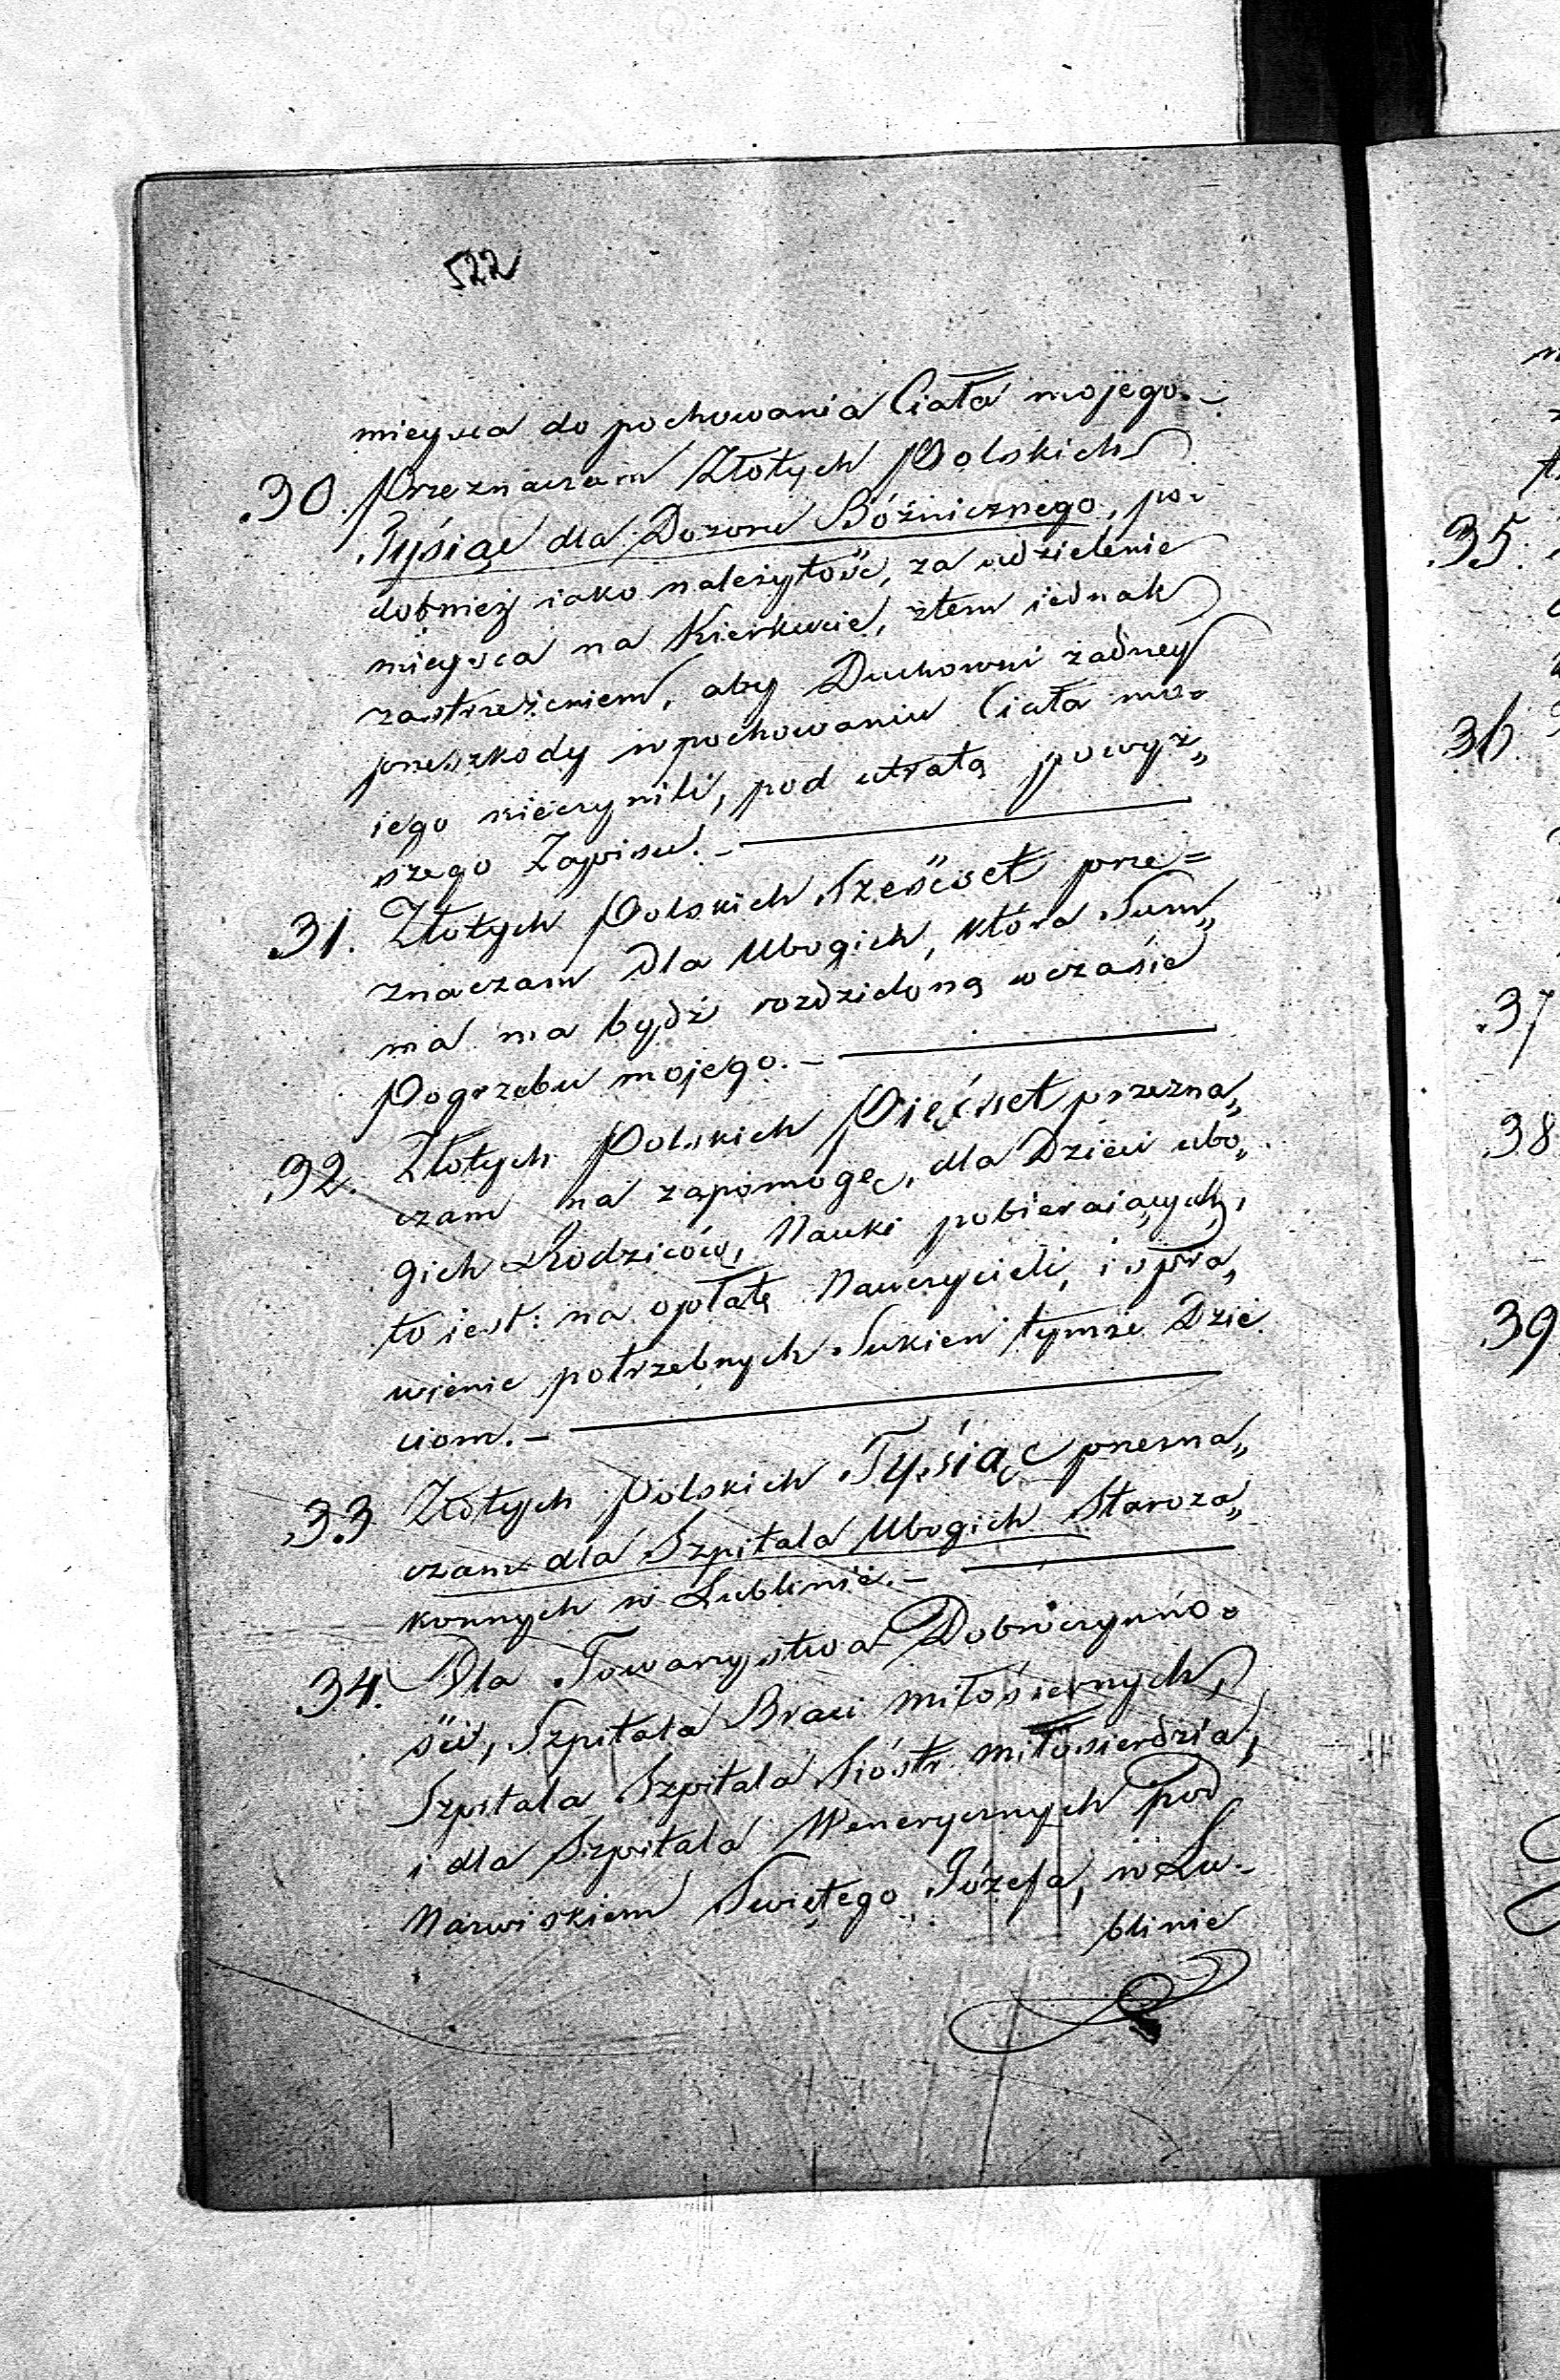 522
mieysca do pochowania Ciała mojego.–
30. Przeznaczam Złotych Polskich
Tysiąc dla Dozoru Bóźnicznego, po-
dobnież iako należytość, za udzielenie
mieysca na Kierkucie, ztem iednak
zastrzeżeniem, aby Duchowni żadney
przeszkody w pochowaniu Ciała mo-
iego nieczynili, pod utratą powyż„
szego Zapisu.–
31. Złotych Polskich Sześćset prze=
znaczam dla Ubogich, która Sum„
ma ma bydź rozdzieloną w czasie
Pogrzebu mojego.–
32. Złotych Polskich Pięćset przezna„
czam na zapomogę, dla Dzieci ubo„
gich Rodziców, Nauki pobieraiących,
to iest: na opłatę Nauczycieli, i spra„
wienie potrzebnych Sukien tymże Dzie
ciom.–
33 Złotych Polskich Tysiąc przezna„
czam dla Szpitala Ubogich Staroza„
konnych w Lublinie.–
34. Dla Towarzystwa Dobroczynno-
ści, Szpitala Braci Miłosiernych,
Szpitala Szpitala Sióstr Miłosierdzia,
i dla Szpitala Wenerycznych pod
Nazwiskiem Swiętego Józefa, w Lu-
blinie
35.
36
37
38
39